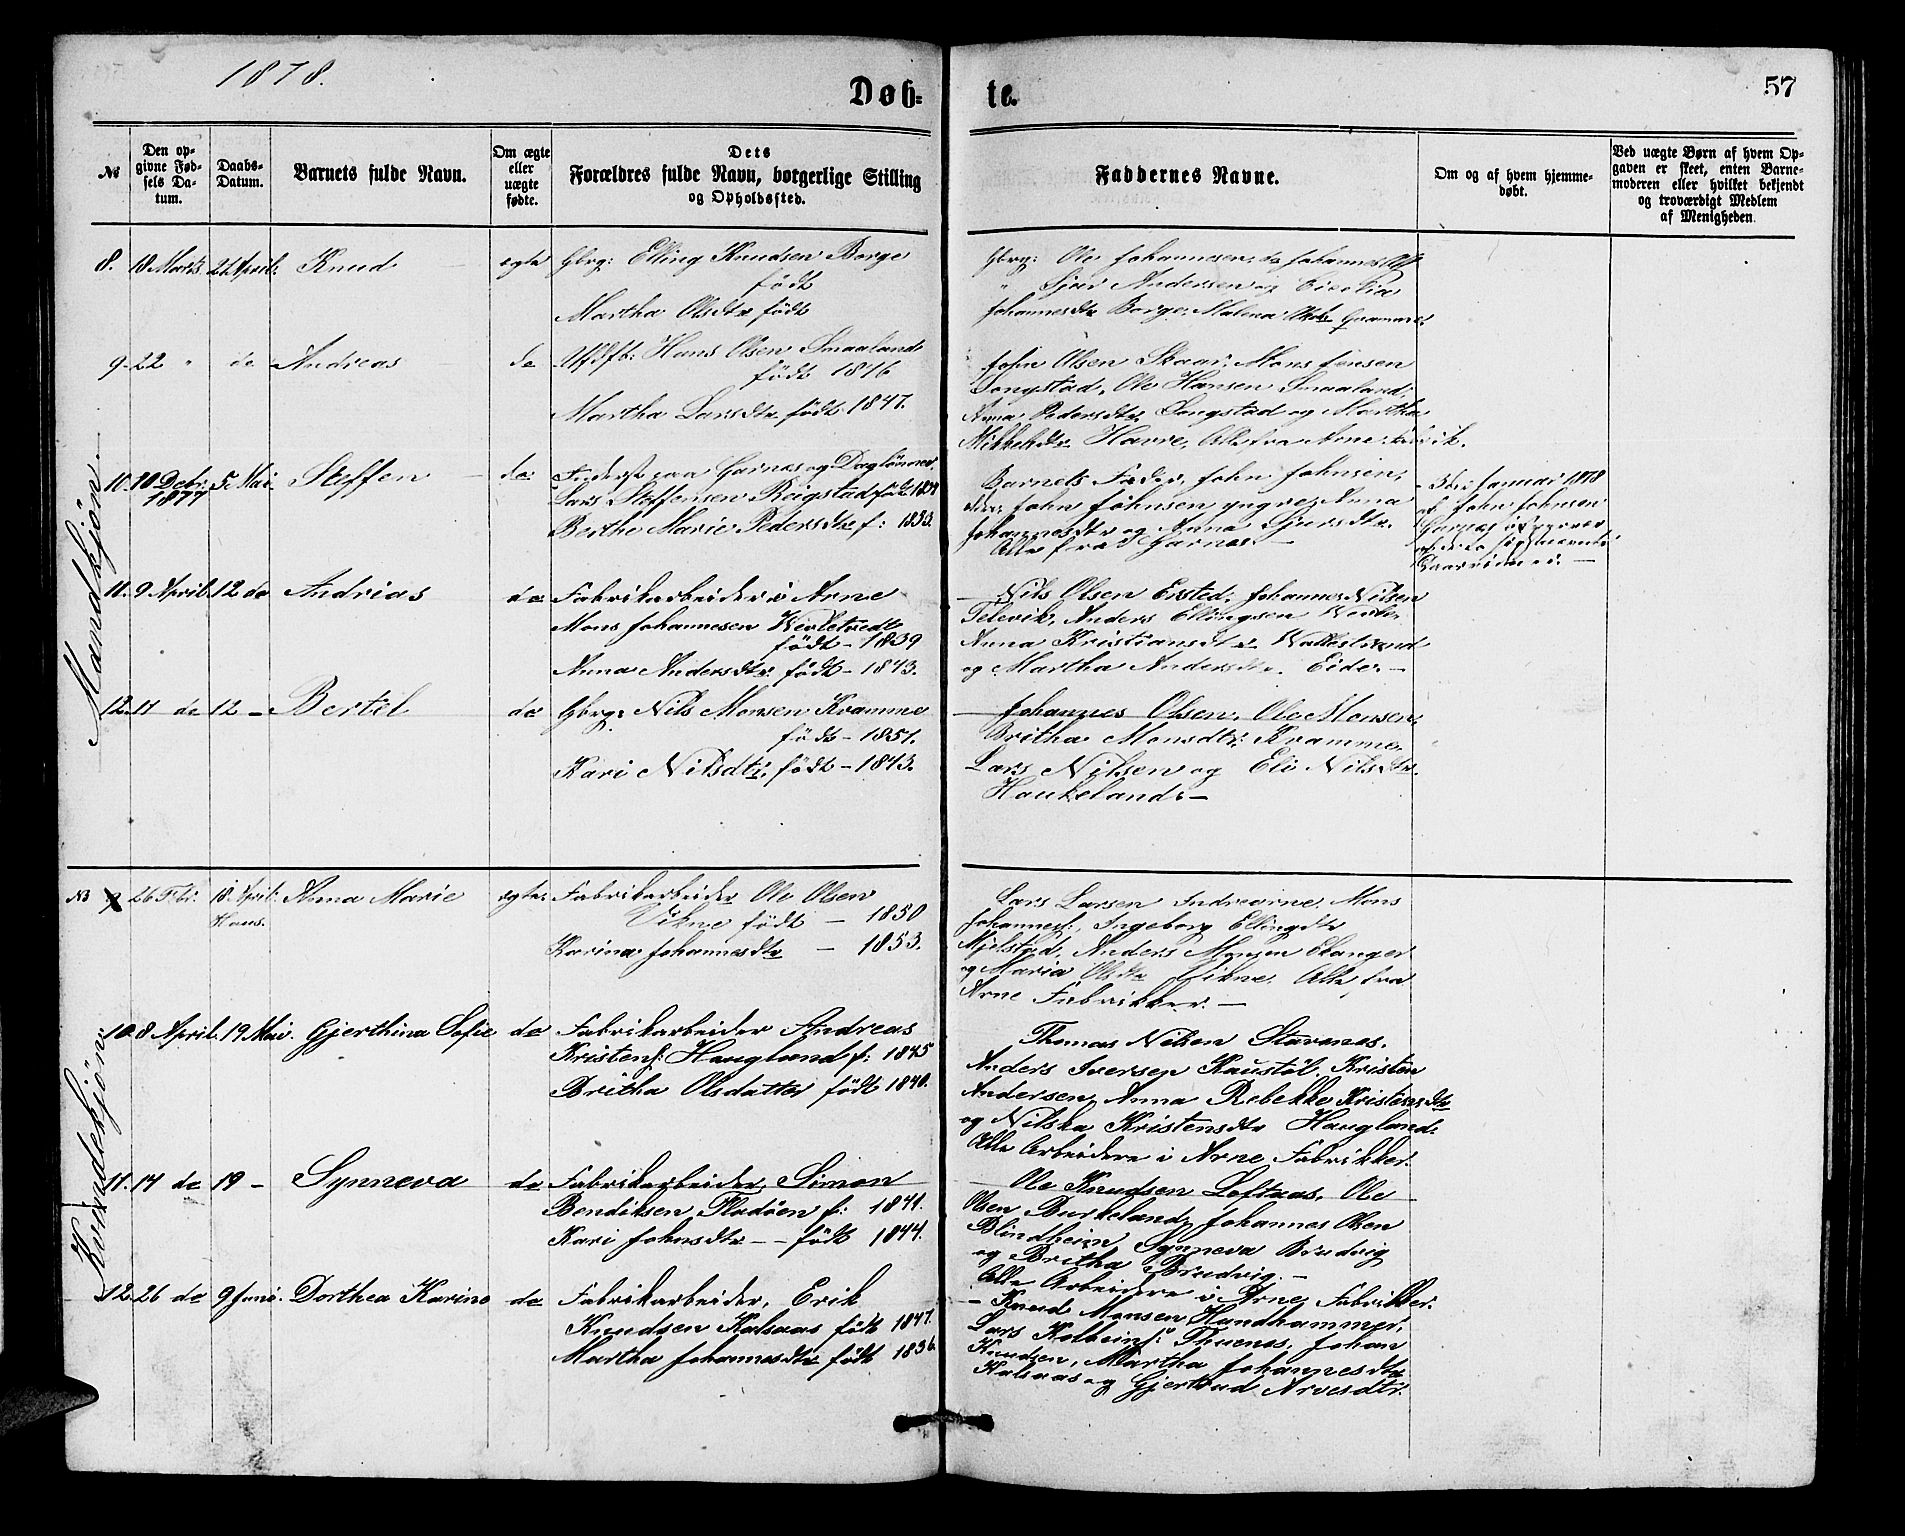 1878.
Døb-
te.
57
№
Den op-
givne Fød-
sels Da-
tum.
Daabs-
Datum.
Barnets fulde Navn.
Om ægte
eller
uægte
fødte.
Dets
Forældres fulde Navn, borgerlige Stilling
og Opholdssted.
Faddernes Navne.
Om og af hvem hjemme-
døbt.
Ved uægte Børn af hvem Op-
gaven er skeet, enten Barne-
moderen eller hvilket bekjendt
og troværdigt Medlem
af Menigheden.
Mandkjøn.
8. 18 Marts 22 April: Knud egte Gbrg: Elling Knudsen Borge
født
Martha Olsdtr født
Gbrg: Ole Johannesen, Johannes
Andersen og
Johannesdtr Borge, Malena
9. 22 " do Andreas do Hans Olsen Smaaland
født 1846
Martha Larsdtr født 1847.
John Olsen Skaar, Mons Jensen
Songstad, Ole Hansen Smaaland,
Anna Pedersdtr Songstad og Martha
Mikkelsdtr Havre, Alle fra Arne
10. 10 Debr. 1877 5. Mai. Steffen do Garnes og Daglønner
Lars Steffensen Reigstad født
Berthe Marie Pedersdtr f: 1833.
Barnets Fader, John Johnsen,
John Johnsen yngre, Anna
Johannesdtr og Anna
Alle fra Garnes. —
Januar 1878
af John Johnsen
Garnes
11. 9 April. 12 do Andrias do Fabrikarbeider i Arne
Mons Johannesen
født - 1839
Anna Andersdtr: født - 1843.
Nils Olsen Ersted, Johannes Nilsen
Televik, Anders Ellingsen
Anna Kristiansdtr
og Martha Andersdtr. Eide. —
12. 11 do 12 - Bertel do Gbrg: Nils Monsen Kramme
født - 1851.
Kari Nilsdtr, født - 1843.
Johannes Olsen, Ole Monsen,
Britha Monsdtr: Kramme,
Lars Nilsen og Eli Nilsdtr.
Haukeland. —
Kvindekjøn
NB 9 26 Febr. 18. April: Anna Marie egte. Fabrikarbeider Ole Olsen
Vikne født — 1850
Karina Johannesdtr — 1853.
Lars Larsen Indrearne, Mons
Johannesf:, Ingeborg Ellingsdtr
Mjelstad, Anders Monsen Ekanger
og Maria Olsdtr Vikne. Alle fra
Arne Fabrikker. —
10. 8 April. 19 Mai. Gjerthina Sofie do Fabrikarbeider Andreas
Kristenf: Haugland f: 1845
Britha Olsdatter født 1840.
Thomas Nilsen Stavenes,
Anders Iversen Kaustøl, Kristen
Andersen, Anna Rebekke Kristensdtr
og Nilska Kristensdtr Haugland.
Alle Arbeidere i Arne Fabrikker.
11. 14 do 19 - Synneva do Fabrikarbeider Simon
Bendiksen Fladøen f: 1841.
Kari Johnsdtr -- født 1844.
Ole Knudsen Loftaas, Ole
Olsen Burkeland, Johannes Olsen
Blindheim Synneva Brudvig
og Britha Brudvig. —
Alle Arbeidere i Arne Fabrikker.
12. 26 do 9 Juni. Dorthea Karine do Fabrikarbeider, Erik
Knudsen Kalsaas født 1847.
Martha Johannesdtr født 1836.
- Knud Monsen Hundhammer,
Lars Kolbeinf: Thuenes, Johan
Knudsen, Martha Johannesdtr
Kalsaas og Gjertrud Arnesdtr.